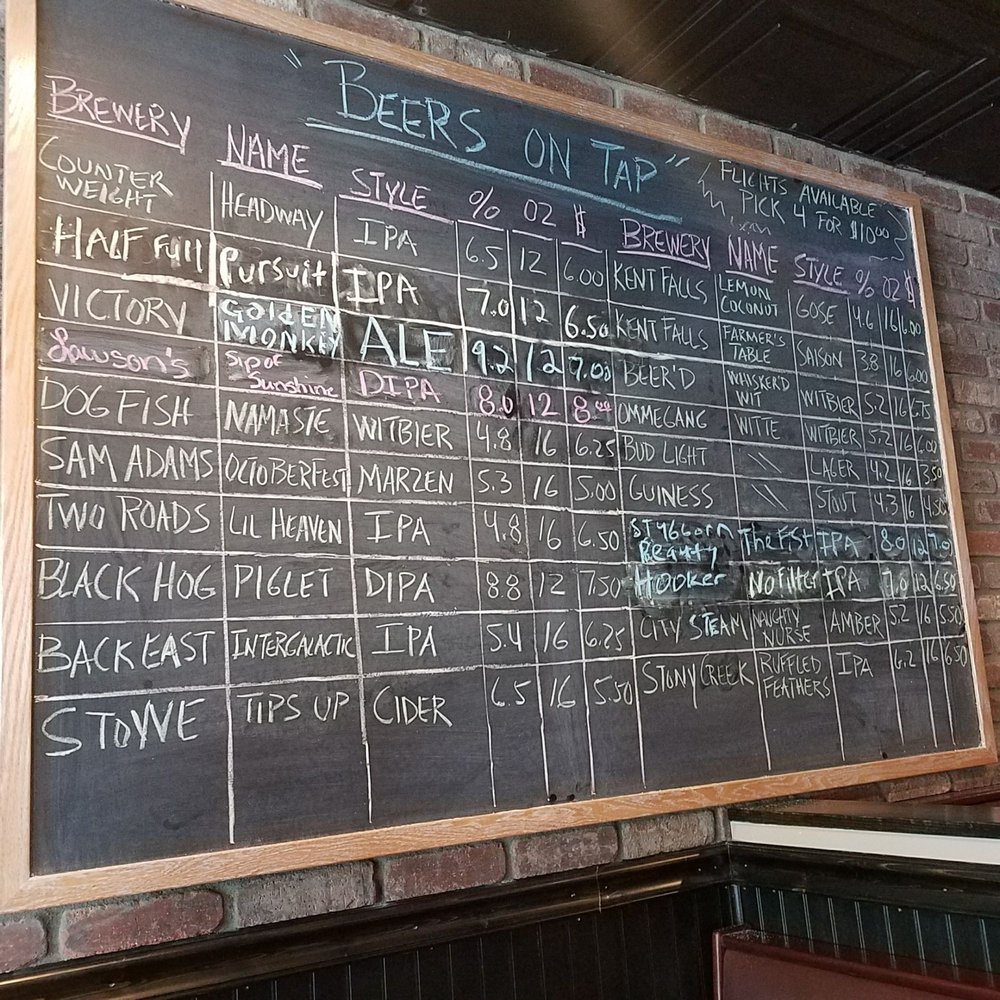 "BEERS ON TAP"
FLIGHTS AVAILABLE
PICK 4 FOR $10.00
BREWERY NAME STYLE % OZ $
COUNTER WEIGHT HEADWAY IPA 6.5 12 6.00
HALF Full Pursuit IPA 7.0 12 6.50
VICTORY GOLDEN MONKEY ALE 9.2 12 7.00
Lawson's Sip of Sunshine DIPA 8.0 12 8.00
DOG FISH NAMASTE WITBIER 4.8 16 6.25
SAM ADAMS OCTOBERFEST MARZEN 5.3 16 5.00
TWO ROADS LIL HEAVEN IPA 4.8 16 6.50
BLACK HOG PIGLET DIPA 8.8 12 7.50
BACK EAST INTERGALACTIC IPA 5.4 16 6.25
STOWE TIPS UP CIDER 6.5 16 5.50
BREWERY NAME STYLE % OZ $
KENT FALLS LEMON COCONUT GOSE 4.6 16 6.00
KENT FALLS FARMER'S TABLE SAISON 3.8 16 6.00
BEER'D WHISKER'D WIT WITBIER 5.2 16 6.75
OMMEGANG WITTE WITBIER 5.2 16 6.00
BUD LIGHT \\ LAGER 4.2 16 3.50
GUINESS \\ STOUT 4.3 16 4.50
Stubborn Beauty IPA 8.0 12 7.0
Hooker No Filter IPA 7.0 12 6.50
CITY STEAM NAUGHTY NURSE AMBER 5.2 16 5.50
STONY CREEK RUFFLED FEATHERS IPA 6.2 16 6.50